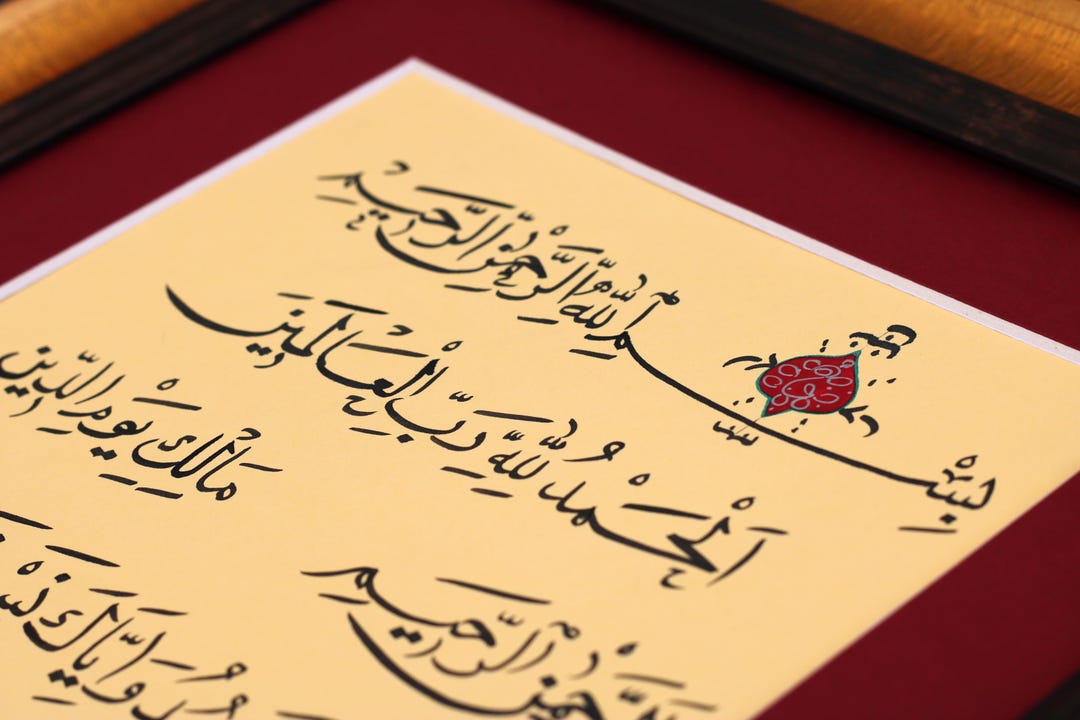 بِسْمِ اللَّهِ الرَّحْمَنِ الرَّحِيمِ
اَلْحَمْدُ لِلَّهِ رَبِّ الْعَالَمِينَ
الرَّحِيمِ
مَالِكِ يَوْمِ الدِّينِ
وَاِيَّاكَ